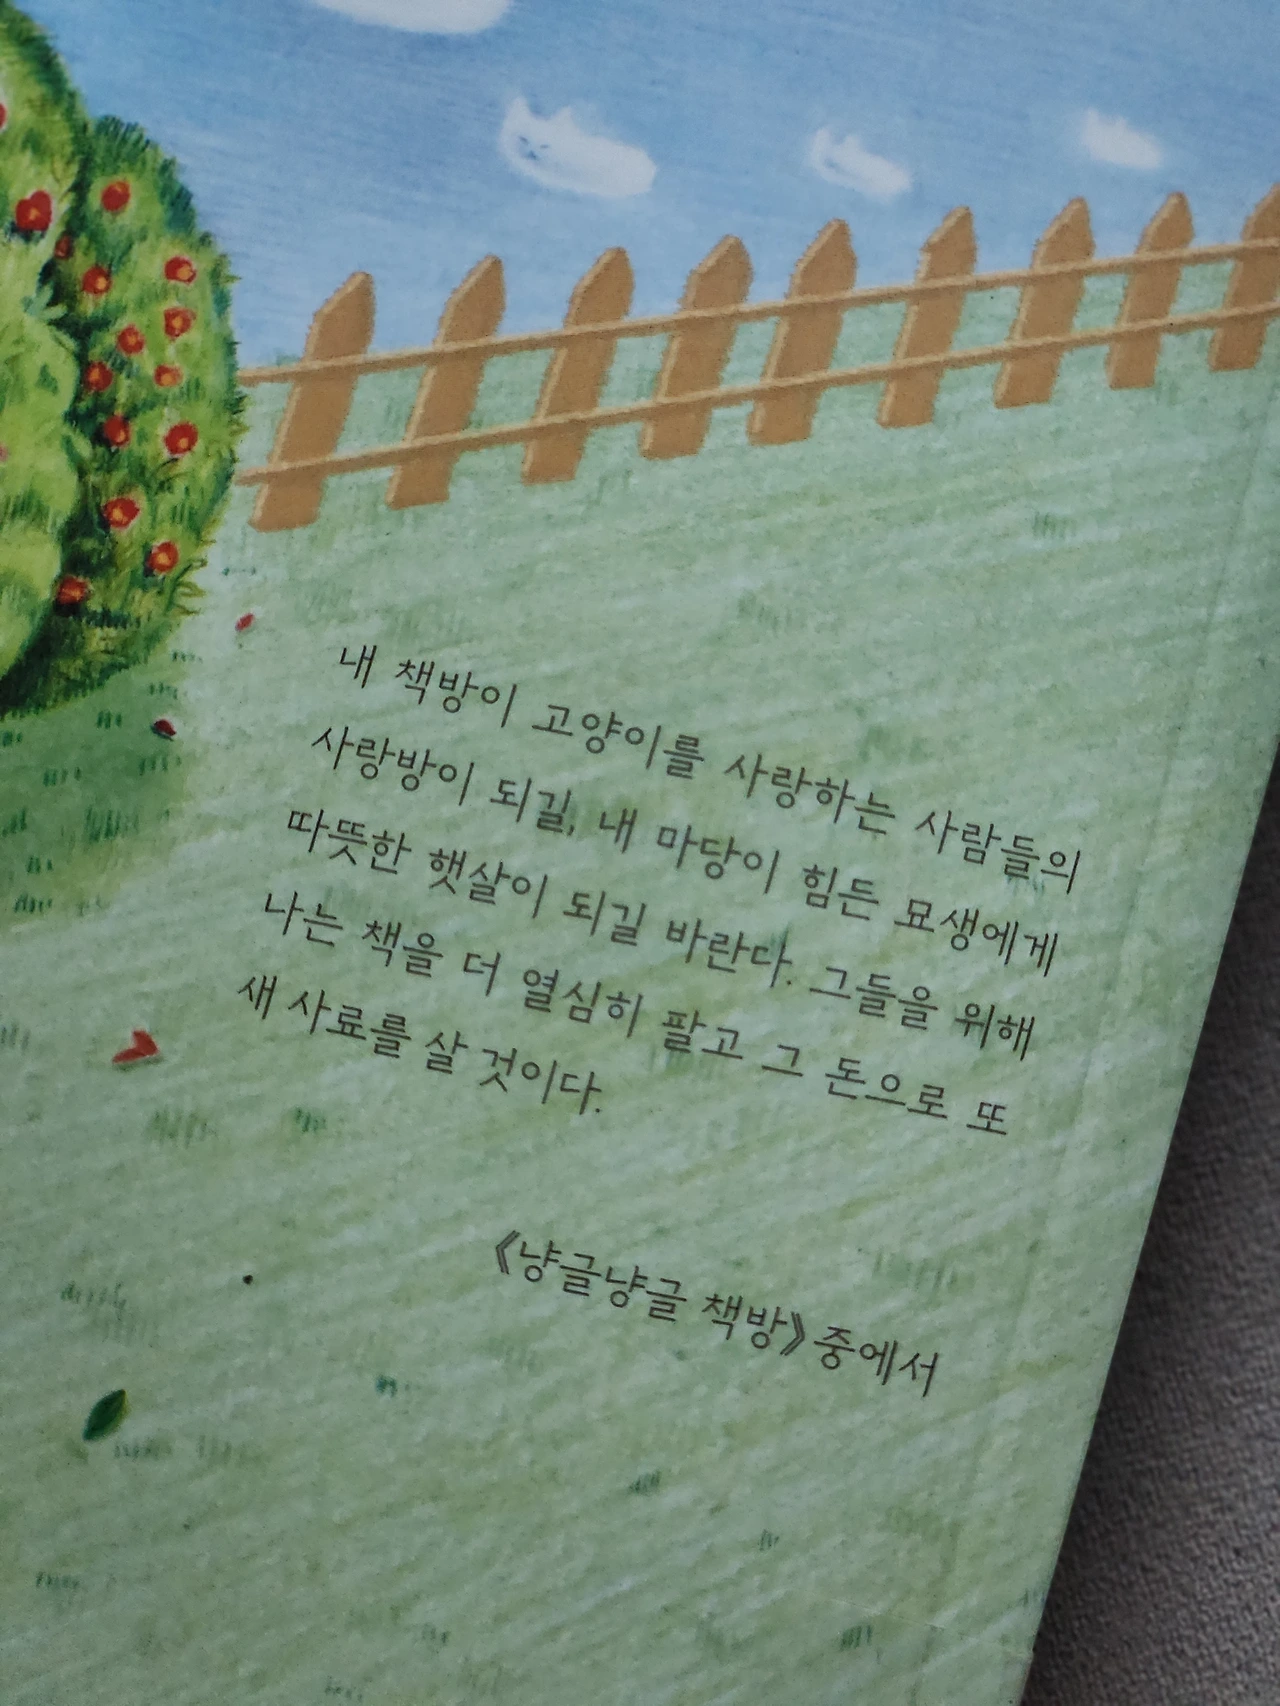 내 책방이 고양이를 사랑하는 사람들의
사랑방이 되길, 내 마당이 힘든 묘생에게
따뜻한 햇살이 되길 바란다. 그들을 위해
나는 책을 더 열심히 팔고 그 돈으로 또
새 사료를 살 것이다.
《냥글냥글 책방》 중에서